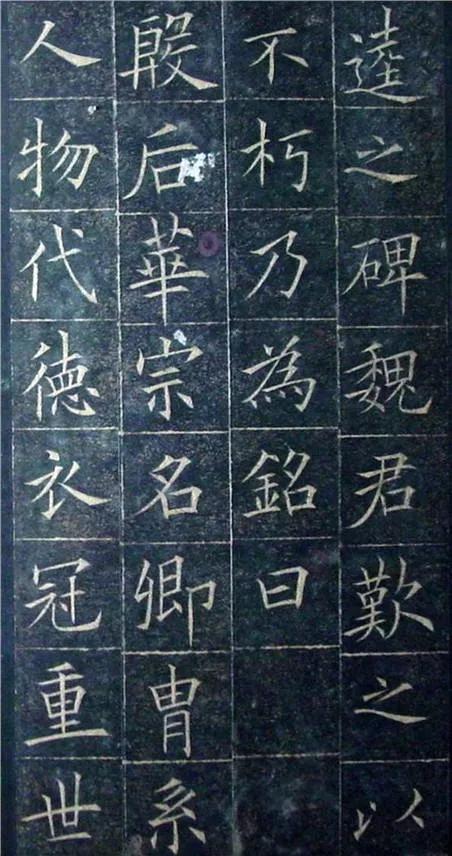 逵之碑魏君歎之以
不朽乃為銘曰
殷后華宗名卿胄系
人物代德衣冠重世